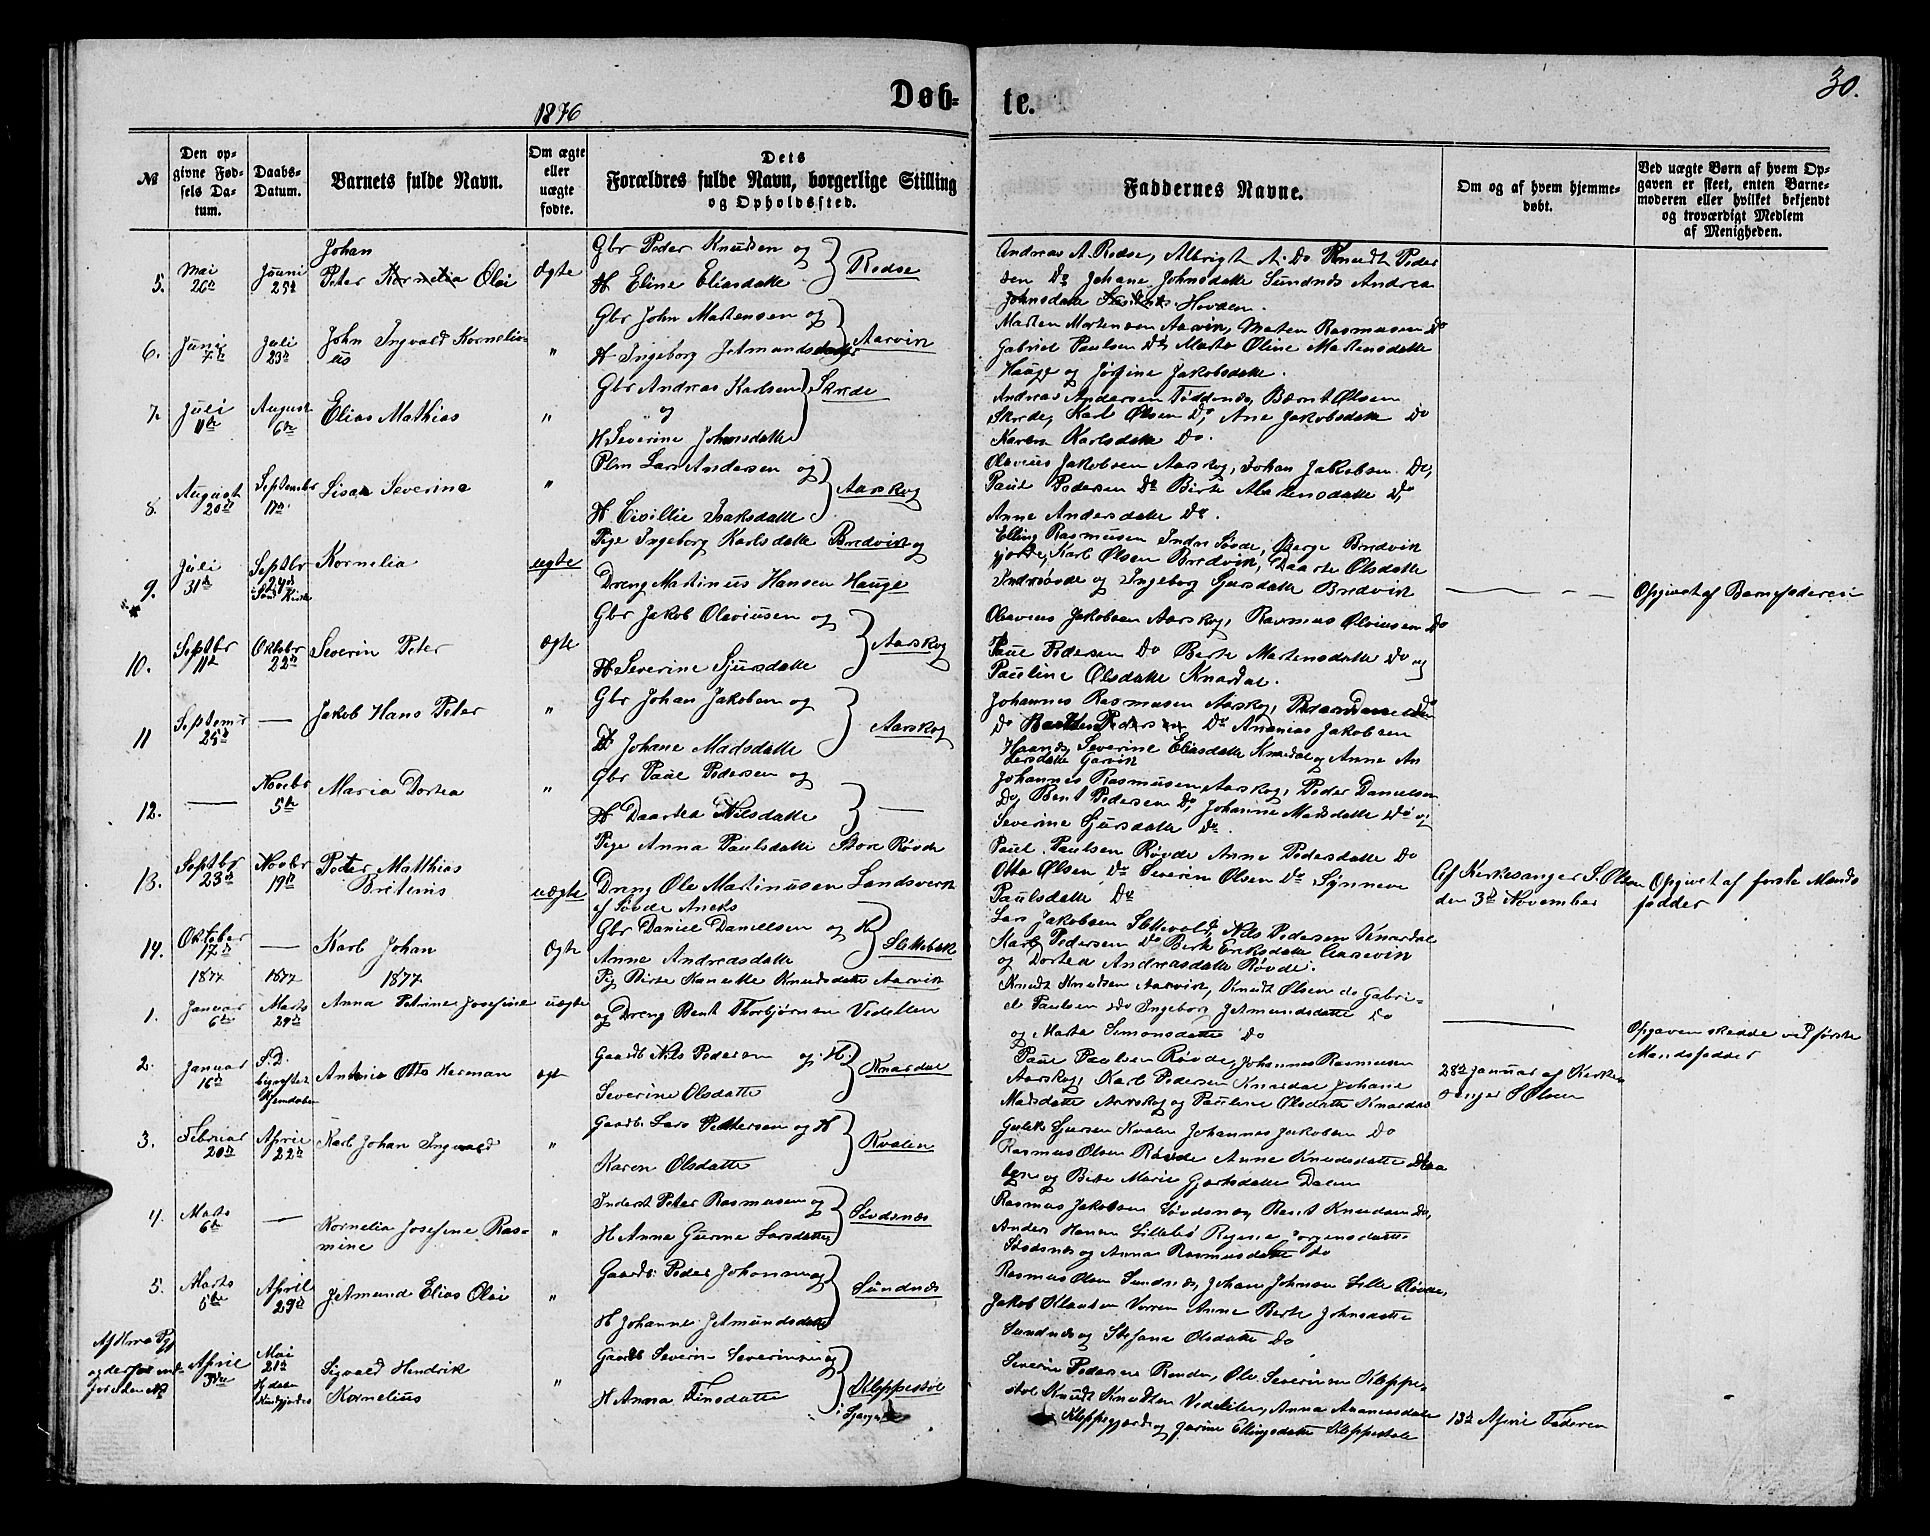 Døb-
te.
30.
1876
№
Den op-
givne Fød-
sels Da-
tum.
Daabs-
Datum.
Barnets fulde Navn.
Om ægte
eller
uægte
fødte.
Dets
Forældres fulde Navn, borgerlige Stilling
og Opholdssted.
Faddernes Navne.
Om og af hvem hjemme-
døbt.
Ved uægte Børn af hvem Op-
gaven er skeet, enten Barne-
moderen eller hvilket bekjendt
og troværdigt Medlem
af Menigheden.
5. Mai 26de
Juni 25de
Johan
Peter Kornelia Olai
Ægte
Gbr Peder Knudsen og
H Eline Eliasdatte
Rødse
Andreas A. Rødse, Albrigt A. Do Knudt Peder
sen Do Johane Johnsdatte Sundnæs Andrea
Johnsdatte Hovden.
6. Juni 7de
Juli 23de
John Ingvald Kornelius
"
Gbr John Martensen og
H Ingeborg Jetmundsdatte
Aarvik
Marten Mortensen Aarvik, Morten Rasmusen Do
Gabriel Paulsen Do, Marte Oline Martensdatte
Hauge og Jørgine Jakobsdatte.
7. Juli 11te
August 6te
Elias Mathias
"
Gbr Andreas Karlsen
og
H Severine Johnsdatte
Skrede
Andreas Andersen Tøddenæs, Bernt Olsen
Skrede, Karl Olsen Do, Ane Jakobsdatte Do
Karen Karlsdatte Do.
8. August 20de
September 17de
Lisa Severine
"
Plm Lars Andersen og
H Civillie Isaksdatte
Aarskog
Olavius Jakobsen Aarskog, Johan Jakobsen Do,
Paul Pedersen Do Birte Martensdatte Do
Anne Andersdatte Do.
9. Juli 31te
Septbr 24de
Kornelia
uegte
Pige Ingeborg Karlsdatte Bredvik og
Dreng Martinus Hansen Hauge
Elling Rasmusen Indre Søvde, Berge Bredvik
Karl Olsen Bredvik, Daarte Olsdatte
Indresøvde og Ingeborg Sjursdatte Bredvik
Opgivet af Barnefaderen
10. Septbr 11te
Oktobr 22de
Severin Peter
Ægte
Gbr Jakob Olaviusen og
H Severine Sjursdatte
Aarskog
Olavius Jakobsen Aarskog, Rasmus Olviusen Do
Paul Pedersen Do Berte Martensdatte Do og
Pauline Olsdatte Knardal.
11 Septemr 25de
—
Jakob Hans Peter
"
Gbr Johan Jakobsen og
H Johane Madsdatte
Aarskog
Johannes Rasmusen Aarskog, Do
Do Do Ananias Jakobsen
Severine Eliasdatte Knardal og Anne An
dersdatte Garvik
12. —
Novbr 5te
Maria Dortea
"
Gbr Paul Pedersen og
H Daartea Nilsdatte
—
Johannes Rasmusen Aarskog, Peder Danielsen
Do, Bent Pedersen Do, Johanne Madsdatte Do og
Severine Sjursdatte Do
13. Septbr 23de
Novbr 19de
Peter Matthias
uægte
Pige Anna Paulsdatte Store Røvde
Dreng Ole Martinusen Landsverk
af Søvde Aneks
Paul Paulsen Røvde Anne Pedersdatte Do
Otto Olsen Do Severin Olsen Do Synneve
Paulsdatte Do
Af Kirkesanger S. Olsen
den 3de November
Opgivet af første Mands
fadder
14. Oktober 17de
—
Karl Johan
Ægte
Gbr Daniel Danielsen og H
Anne Andreasdatte
Slettebak
Lars Jakobsen Slettevold, Nils Pedersen Knardal
Karl Pedersen Do Berte Eriksdatte Aarvik
og Dortea Andreasdatte Røvde.
1877 1877 1877
1. Januar 6te
Marts 29de
Anna Petrine Josefine
uægte
Pig Birte Kanutte Knudsdatte Aarvik
og Dreng Bent Thorbjørnsen Vedelden
Knudt Knudsen Aarvik, Knudt Olsen do Gabri-
el Paulsen Do Ingeborg Jetmundsdatte Do
og Marte Simonsdatte Do
Opgaven skedde ved første
Mandsfadder
2. Januar 16de
S.D.
Anton Otto Herman
ægt
Gaardb Nils Pedersen og H.
Severine Olsdatte
Knardal
Paul Paulsen Røvde, Johannes Rasmusen
Aarskog, Karl Pedersen Knardal Johane
Madsdatte Aarskog og Pauline Olsdatte Knardal
28de Januar af Kirke
sanger S Olsen
3. Februar 20de
April 22de
Karl Johan Ingvald
"
Gaardb. Lars Pettersen og H
Karen Olsdatte
Kvalen
Gulek Sjursen Kvalen Johannes Jakobsen Do
Rasmus Olsen Røvde Anne Knudsdatte
og Berte Marie Gjertsdatte Dalen
4. Marts 6te
—
Kornelia Josefine Ras-
mine
"
Inderst Peter Rasmusen og
H Anna Gurine Larsdatte
Søvdsnæs
Rasmus Jakobsen Søvdsnæs, Bent Knudsen Do,
Anders Hansen Lillebø Regine Jørgensdatte
Søvdsnæs og Anna Rasmusdatte Do
5. Marts 5te
April 29de
Jetmund Elias Olai
"
Gaardb. Peder Johansen og
H Johanne Jetmundsdatte
Sundnæs
Rasmus Olsen Sundnæs, Johan Johnsen Lille Røvde,
Jakob Klausen Vorren Anne Berte Johnsdatte
Sundnæs og Stefana Olsdatte Do
April 3die
Mai 21de
Sigvald Hendrik
Kornelius
"
Gaardb Severin Severinsen og
H Anna Finsdatte
Kleppestøl
Severin Pedersen Ole Severinsen Kleppe-
støl Knudt Knudsen Vedelden, Anna Ananiasdatte
Kleppegjerd og Jarine Ellingsdatte Kleppestøle
13de April Faderen